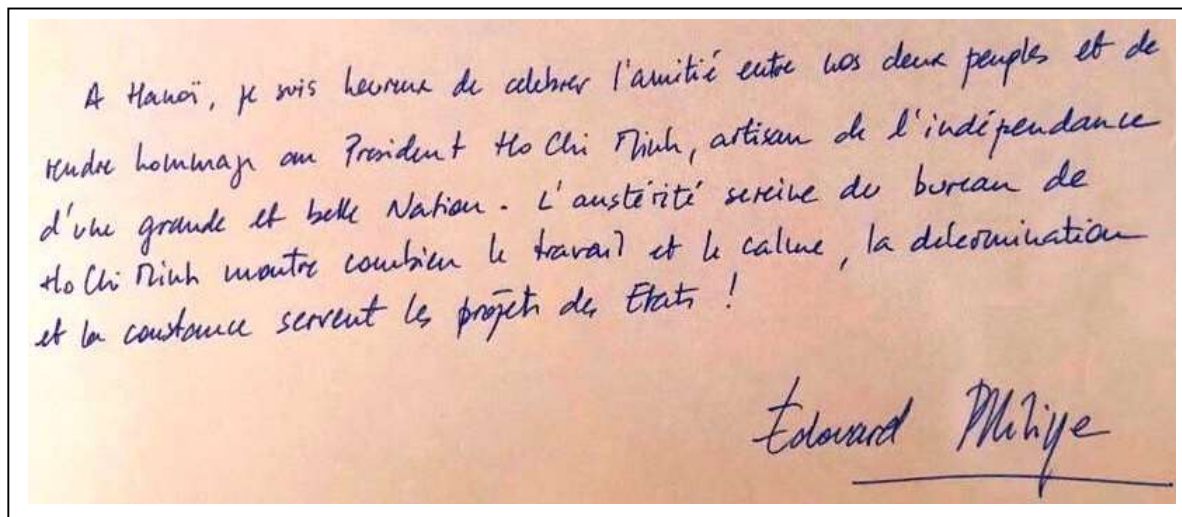 A Hanoï, je suis heureux de celebrer l'amitié entre nos deux peuples et de
rendre hommage au President Ho Chi Minh, artisan de l'indépendance
d'une grande et belle Nation. L'austérité sereine du bureau de
Ho Chi Minh montre combien le travail et le calme, la determination
et la constance servent les projets des Etats !
Edouard Philippe